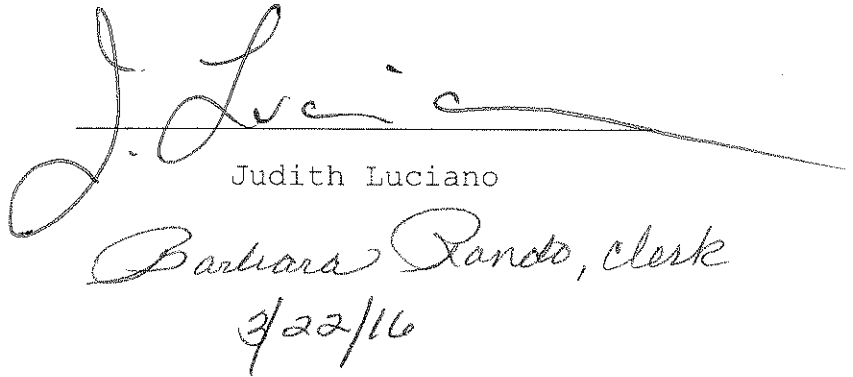 J. Luciano
Judith Luciano
Barbara Rando, clerk
3/22/16